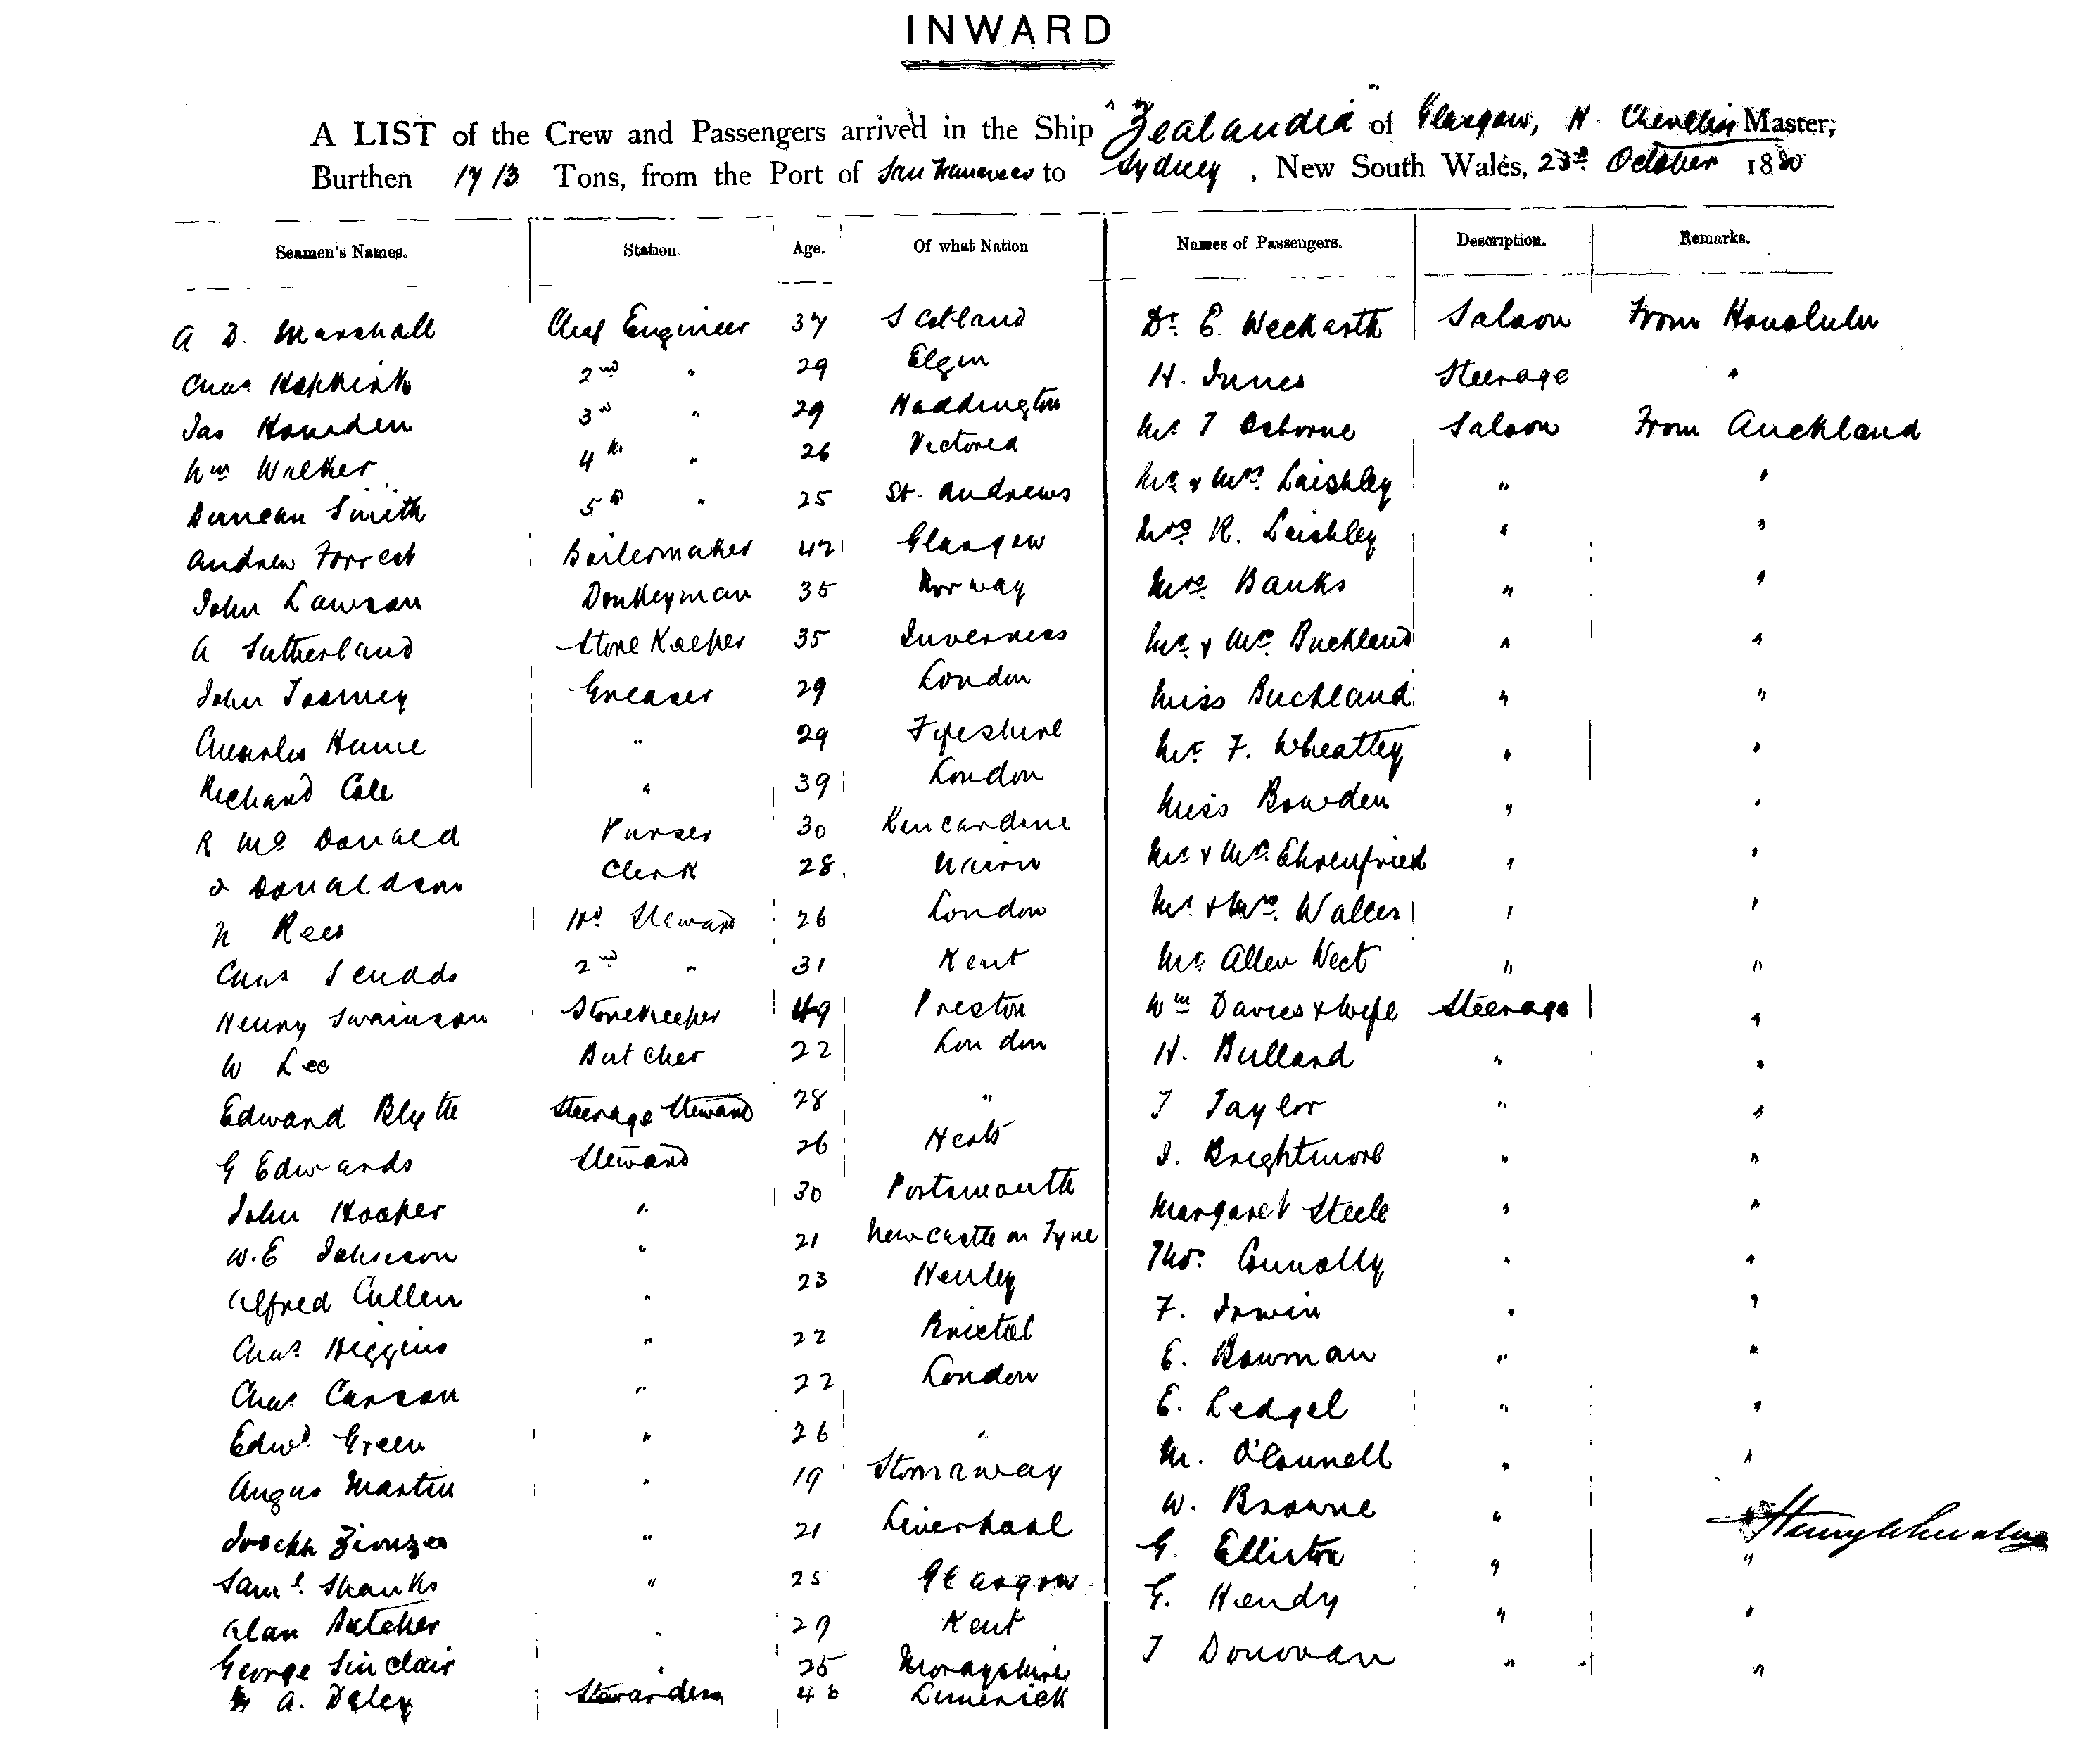 INWARD
A LIST of the Crew and Passengers arrived in the Ship "Zealandia" of Glasgow, H. Chevalier Master,
Burthen 1713 Tons, from the Port of San Francisco to Sydney, New South Wales, 23rd October 1880
Seamen's Names. Station Age. Of what Nation Names of Passengers. Description. Remarks.
A D. Marshall Chief Engineer 37 Scotland Dr. E. Weckarth Saloon From Honolulu
Chas. Hopkirk 2nd " 29 Elgin H. Innes Steerage "
Jas Howden 3rd " 29 Haddington Mr T Osborne Saloon From Auckland
Wm Walker 4th " 26 Victoria Mr & Mrs. Laishley " "
Duncan Smith 5th " 25 St. Andrews Mrs R. Laishley " "
Andrew Forrest Boilermaker 42 Glasgow Mrs. Banks " "
John Lawson Donkeyman 35 Norway Mr. & Mrs. Buckland " "
A Sutherland Store Keeper 35 Inverness Miss Buckland " "
John Toomey Greaser 29 London Mr. F. Wheatley " "
Charles Hume " 29 Fifeshire Miss Bowden " "
Richard Cole " 39 London Mr & Mrs. Ehrenfried " "
R McDonald Purser 30 Kincardine Mr & Mrs. Walter " "
J Donaldson Clerk 28 Nairn Mr. Allen West " "
N Rees Hd Steward 26 London Wm Davies & wife Steerage "
Chas Scudds 2nd " 31 Kent H. Bullard " "
Henry Swainson Storekeeper 49 Preston T Taylor " "
W Lee Butcher 22 London J. Brightmore " "
Edward Blythe Steerage Steward 28 " Margaret Steele " "
G Edwards Steward 26 Herts Thos. Connolly " "
John Hooper " 30 Portsmouth F. Irwin " "
W.E Johnson " 21 Newcastle on Tyne E. Bowman " "
Alfred Cullen " 23 Henley E. Ledgel " "
Chas. Higgins " 22 Bristol M. O'Connell " "
Chas. Carson " 22 London W. Browne " "
Edwd. Green " 26 " G. Elliston " "
Angus Martin " 19 Stornaway G. Hendy " "
Joseph " 21 Liverpool T Donovan " "
Saml. Shanks " 25 Glasgow
Alan Butcher " 29 Kent
George Sinclair " 25 Morayshire
A. Daley Stewardess 46 Limerick